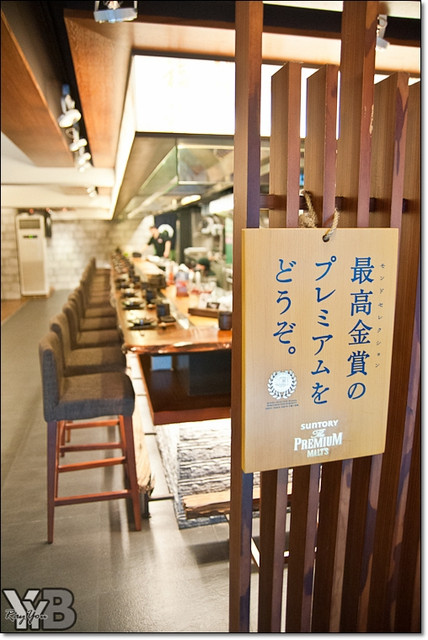 最高金賞の
モンドセレクション
プレミアムを
どうぞ。
SUNTORY
THE
PREMIUM
MALT'S
YYB